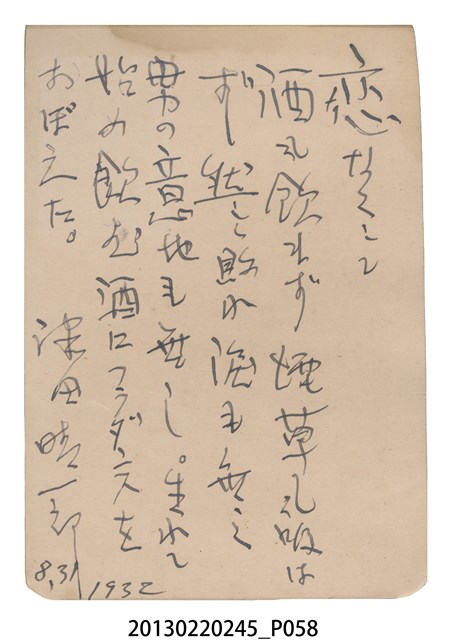 恋なくして
酒も飲れず 煙草も吸は
ず 然し 敗れ 涙も無く
男の意地も無し。生れて
始め飲む酒にフラダンスを
おぼえた。
津田晴一郎
8,31 1932
20130220245_P058